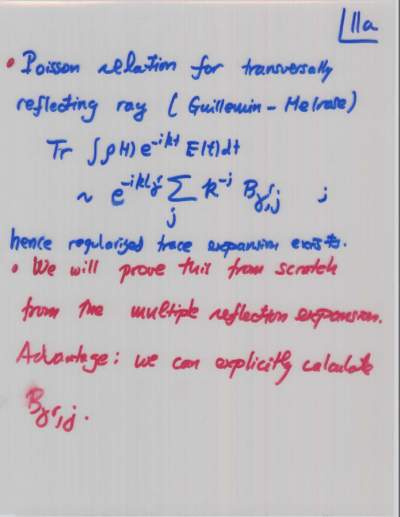 11a
• Poisson relation for transversally
reflecting ray (Guillemin-Melrose)
Tr ∫ρ(t) e^{-ikt} E(t)dt
~ e^{-ikLγ} Σ_j k^{-j} B_{γ,j} ;
hence regularised trace expansion exists.
• We will prove this from scratch
from the multiple reflection expansion.
Advantage: we can explicitly calculate
B_{γ,j}.